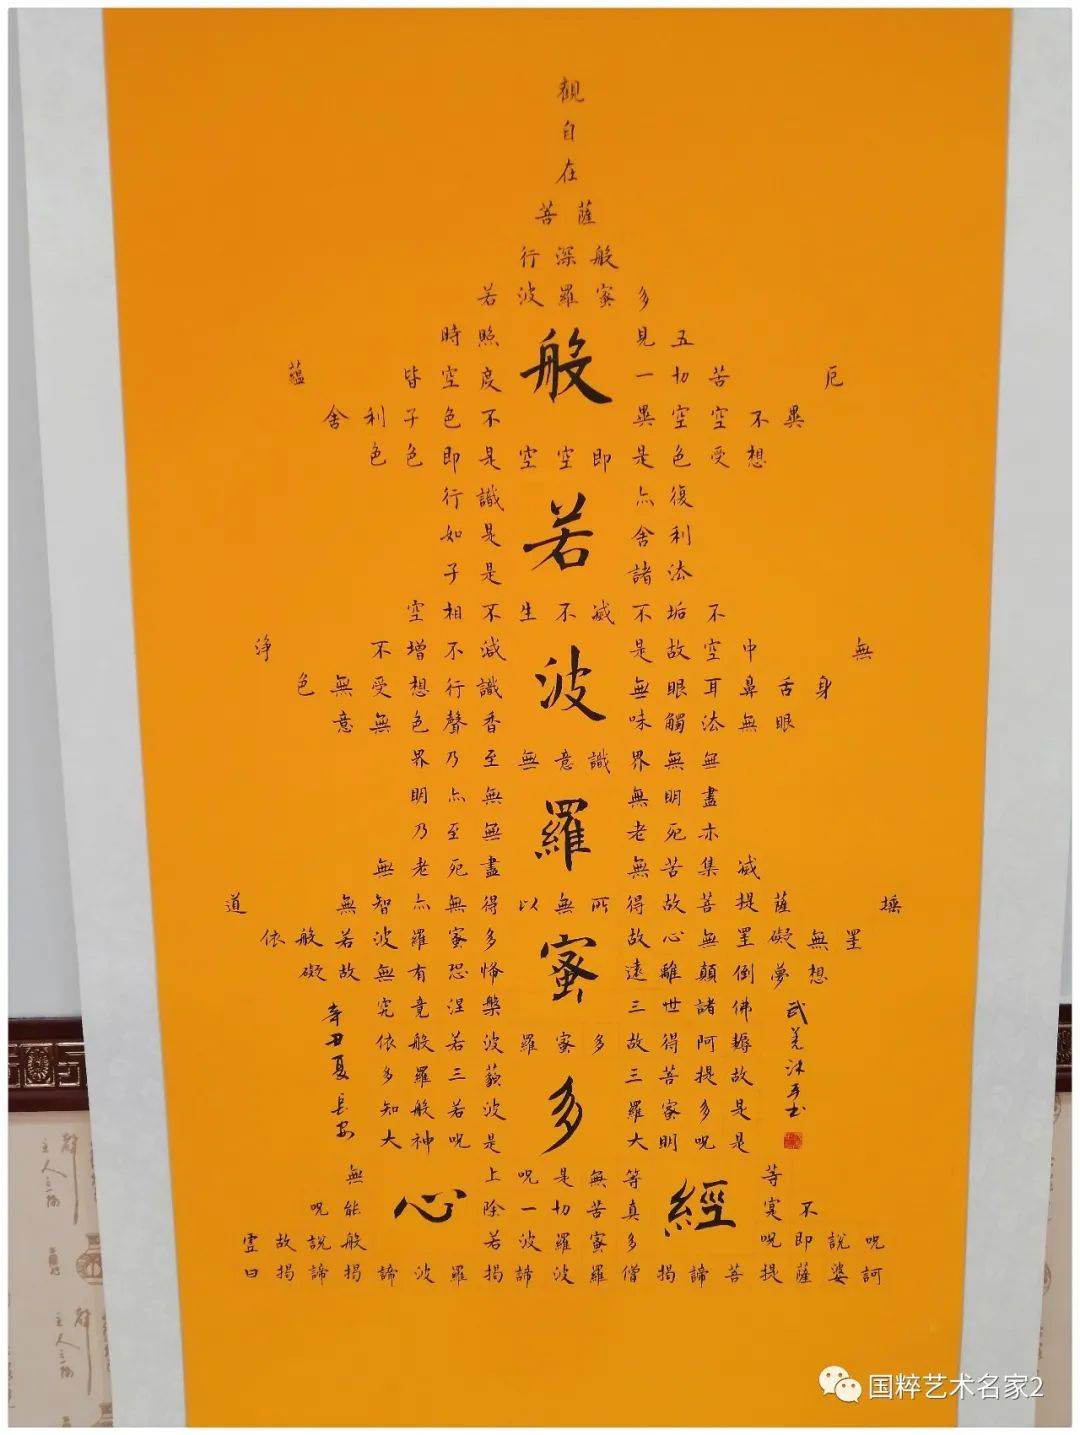 觀
自
在
菩薩
行深般
若波羅蜜多
時照 見五
蘊 皆空度 一切苦 厄
舍利子色不 異空空不異
色色即是空空即是色受想
行識 亦復
如是 舍利
子是 諸法
空相不生不滅不垢不
淨 不增不減 是故空中 無
色無受想行識 無眼耳鼻舌身
意無色聲香 味觸法無眼
界乃至無意識界無無
明亦無 無明盡
乃至無 老死亦
無老死盡 無苦集滅
道 無智亦無得以無所得故菩提薩 埵
依般若波羅蜜多 故心無罣礙無罣
礙故無有恐怖 遠離顛倒夢想
究竟涅槃 三世諸佛
依般若波羅蜜多故得阿耨
多羅三藐 三菩提故
知般若波 羅蜜多是
大神呪是 大明呪是
無 上呪是無等 等
呪能 除一切苦真 寔不
靈故說般 若波羅蜜多 呪即說呪
曰揭諦揭諦波羅揭諦波羅僧揭諦菩提薩婆訶
般若波羅蜜多
心經
辛丑夏長安
沐手书
国粹艺术名家2